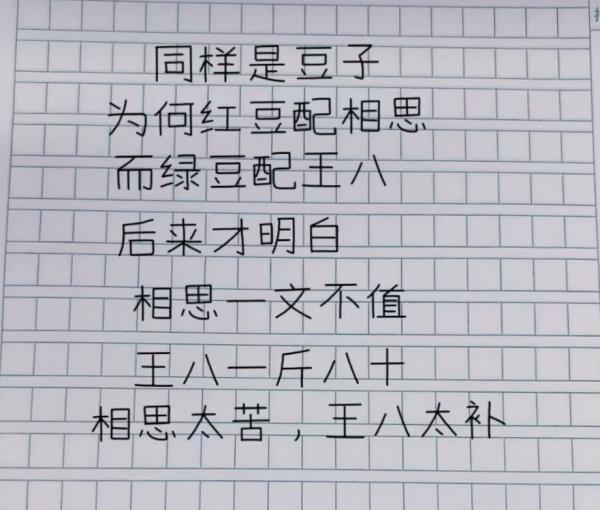 同样是豆子
为何红豆配相思
而绿豆配王八
后来才明白
相思一文不值
王八一斤八十
相思太苦，王八太补